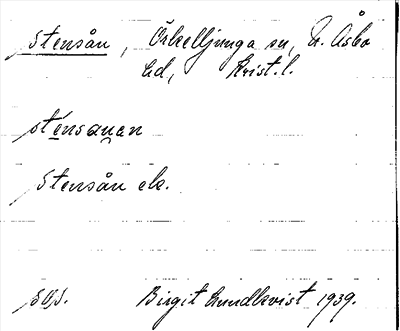 Stensån, Örkelljunga sn, N. Åsbo
hd, Krist. l.
stensanan
Stensån ek.
Birgit Lundkvist 1939.